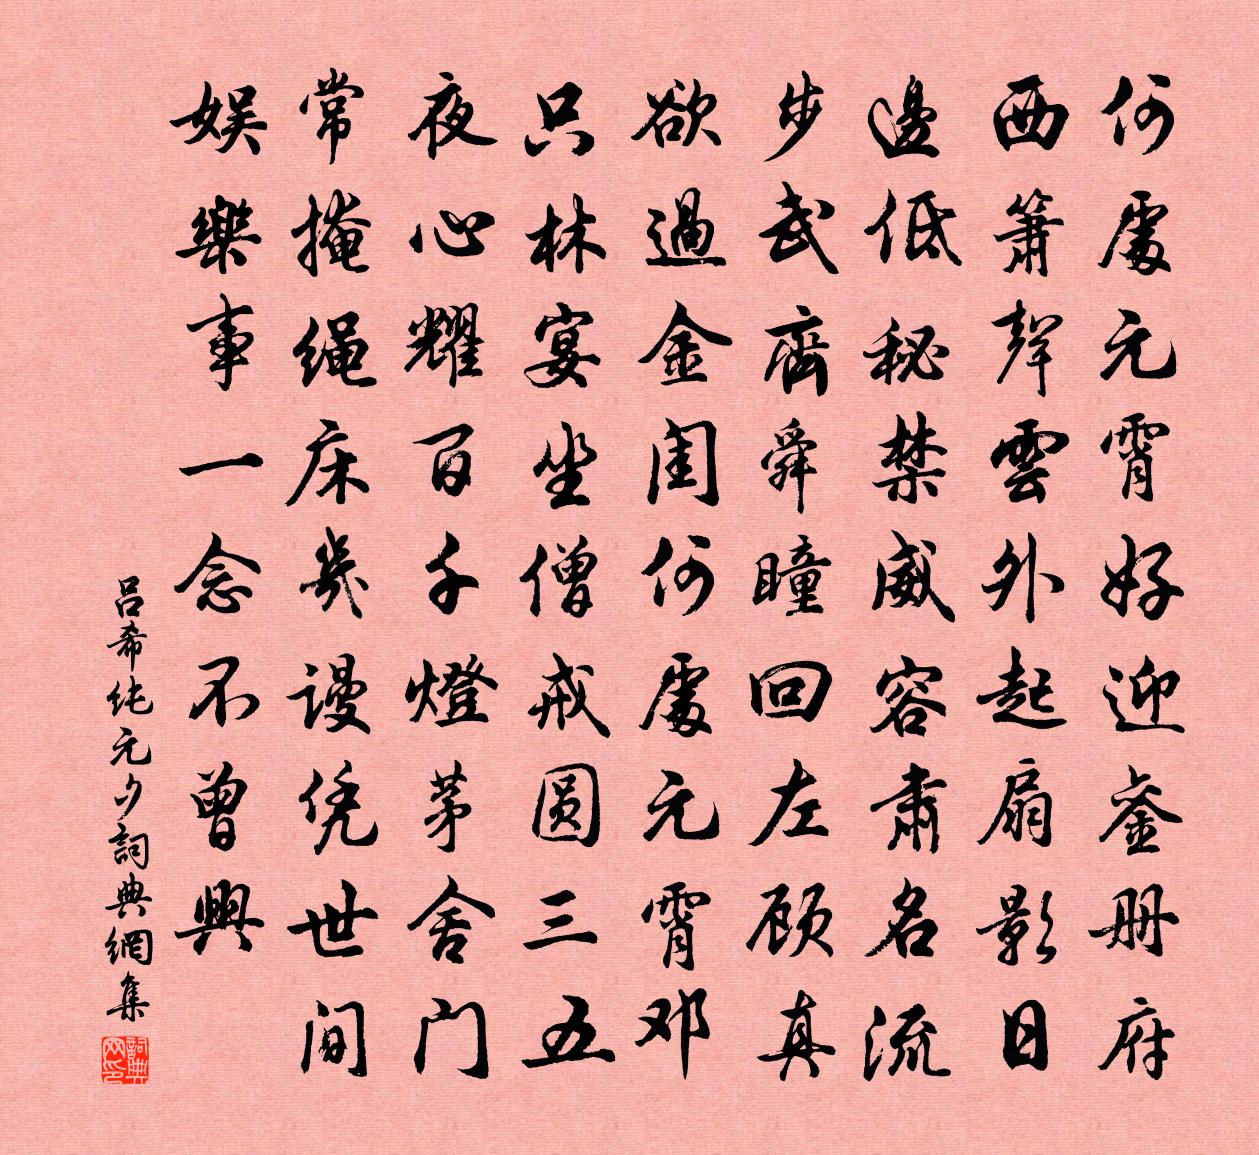 何處元宵好迎銮册府
西簫聲雲外起扇影日
邊低秘禁威容肅名流
步武齊舜瞳回左顾真
欲過金闺何處元宵邓
只林宴坐僧戒圆三五
夜心耀百千燈茅舍门
常掩绳床幾謾凭世间
娱樂事一念不曾興
吕希纯元夕詞典網集
詞典网印